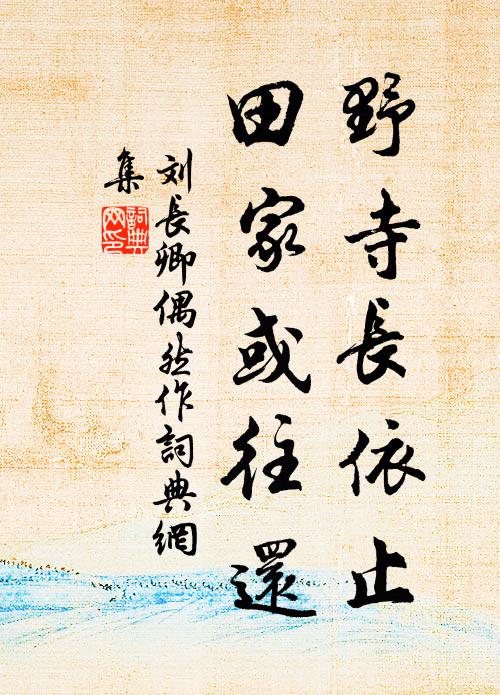 野寺長依止
田家或往還
刘長卿偶然作詞典網
集
詞典网印